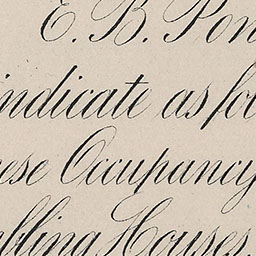 E. B. Pon
indicate as fol
ese Occupancy
bling Houses.